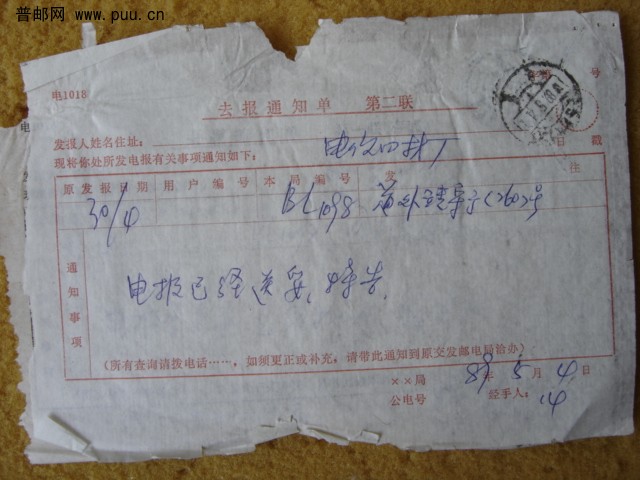 普邮网 www.puu.cn
电1018
号
去报通知单 第二联
发报人姓名住址：
日 戳
现将你处所发电报有关事项通知如下：
原发报日期 用户编号 本局编号 发 注
30/4 BL1098
通知事项
电报已经送妥，特告.
(所有查询请拨电话……，如须更正或补充，请带此通知到原交发邮电局洽办)
××局 89年5月4日
公电号 经手人：14